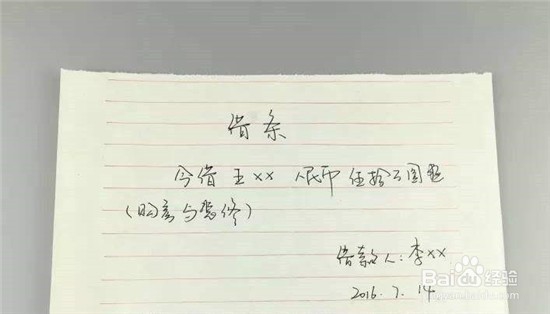 借条
今借王×× 人民币伍拾万圆整
(购房与装修)
借款人：李××
2016.7.14
Baidu经验